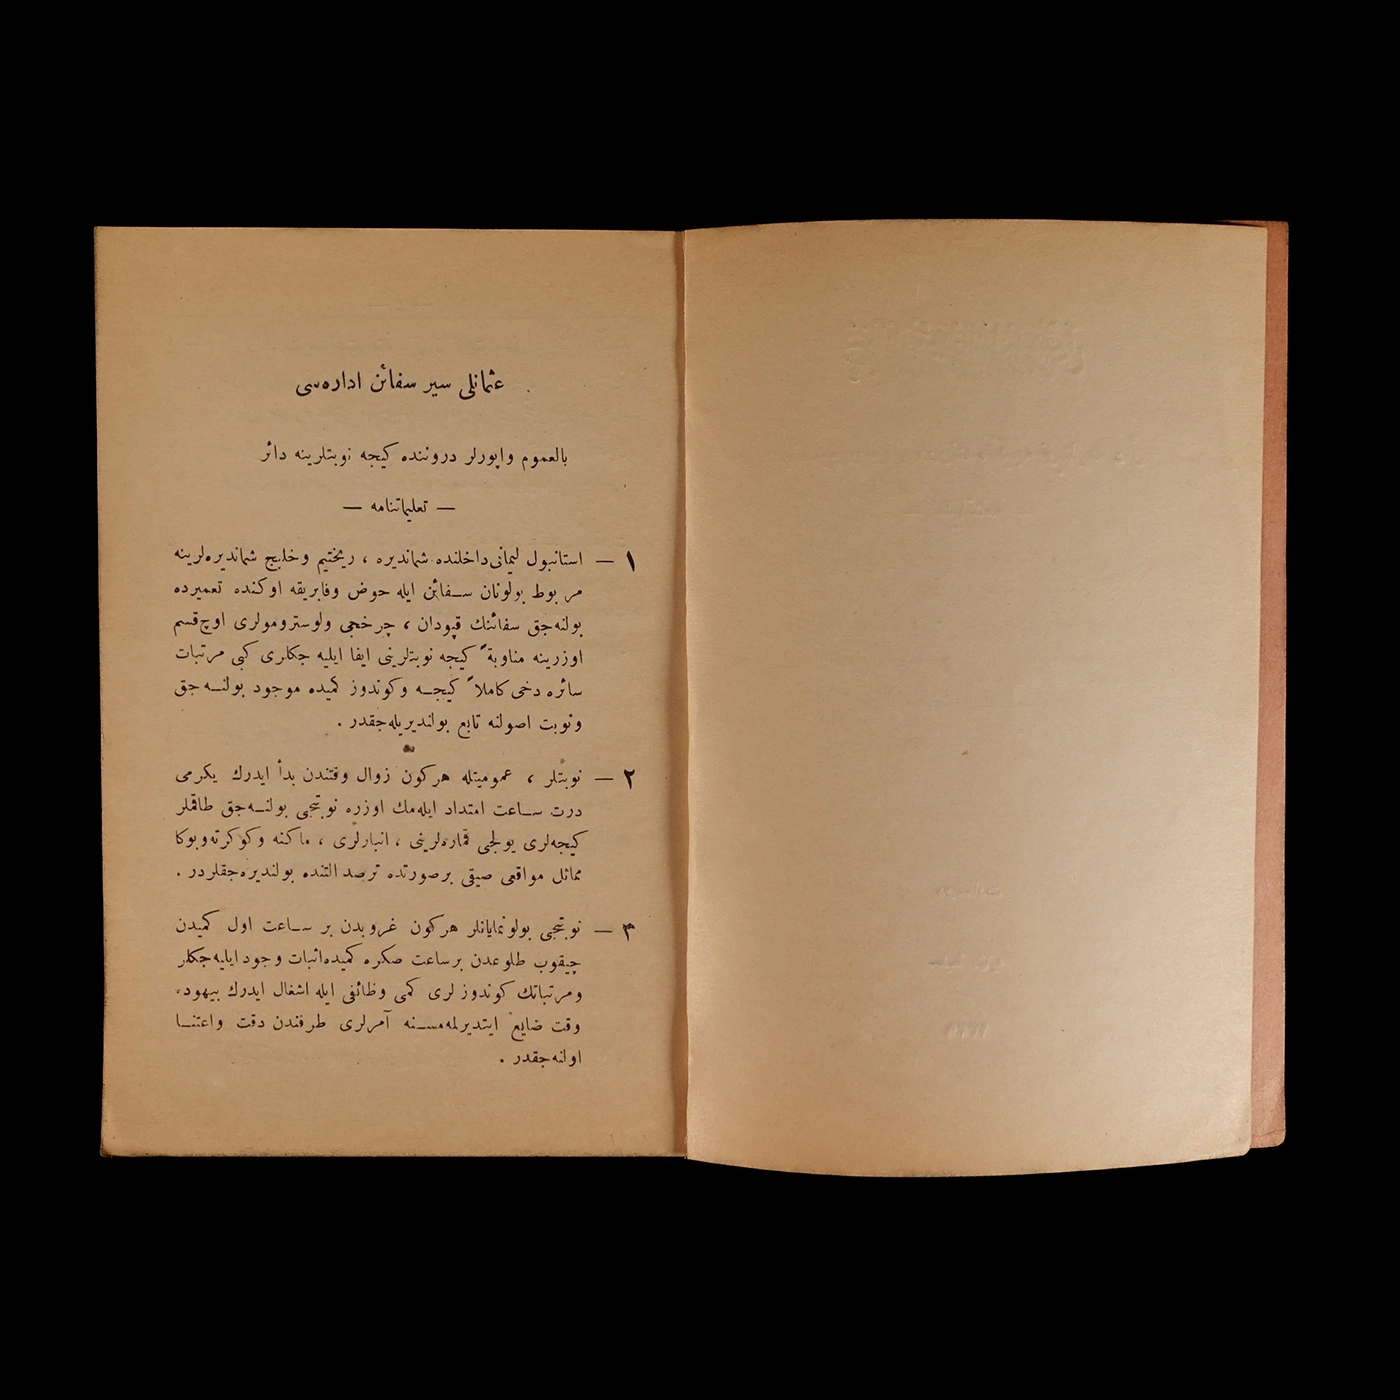 عثمانلی سیر سفائن اداره‌سی
بالعموم واپورلر دروننده كیجه نوبتلرینه دائر
— تعلیماتنامه —
١ — استانبول لیمانی داخلنده شماندیره ، ریختیم وخلیج شماندیره‌لرینه
مربوط بولونان سفائن ایله حوض وفابریقه اوكنده تعمیرده
بولنه‌جق سفائنك قپودان ، چرخجی ولوسترومولری اوچ قسم
اوزرینه مناوبةً كیجه نوبتلرینی ایفا ایلیه جكلری كبی مرتبات
سائره دخی كاملاً كیجه وكوندوز كمیده موجود بولنه‌جق
ونوبت اصولنه تابع بولندیریله‌جقدر .
٢ — نوبتلر ، عمومیتله هركون زوال وقتندن بدأ ایدرك یكرمی
درت ساعت امتداد ایله‌مك اوزره نوبتجی بولنه‌جق طاقملر
كیجه‌لری یولجی قماره‌لرینی ، انبارلری ، ماكنه وكوكرته‌وبوكا
مماثل مواقعی صیقی برصورتده ترصد التنده بولندیره‌جقلردر .
٣ — نوبتجی بولونمایانلر هركون غروبدن بر ساعت اول كمیدن
چیقوب طلوعدن برساعت صكره كمیده‌اثبات وجود ایلیه‌جكلر
ومرتباتك كوندوزلری كمی وظائفی ایله اشغال ایدرك بیهوده
وقت ضایع ایتدیرلمه‌مسنه آمرلری طرفندن دقت واعتنا
اولنه‌جقدر .